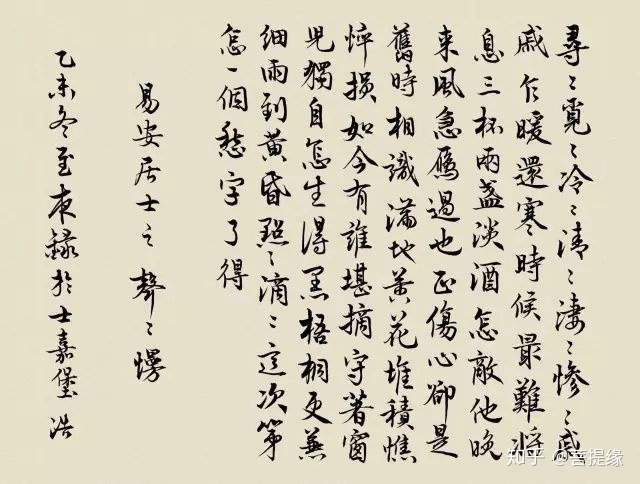 尋〻覓〻冷〻清〻淒〻慘〻戚
戚乍暖還寒時候最難將
息三杯兩盞淡酒怎敵他晚
来風急雁過也正傷心卻是
舊時相識滿地黃花堆積憔
悴損如今有誰堪摘守著窗
兒獨自怎生得黑梧桐更兼
細雨到黃昏點〻滴〻這次第
怎一個愁字了得
易安居士之聲〻慢
乙未冬至夜錄於士嘉堡 浩
知乎 @菩提缘